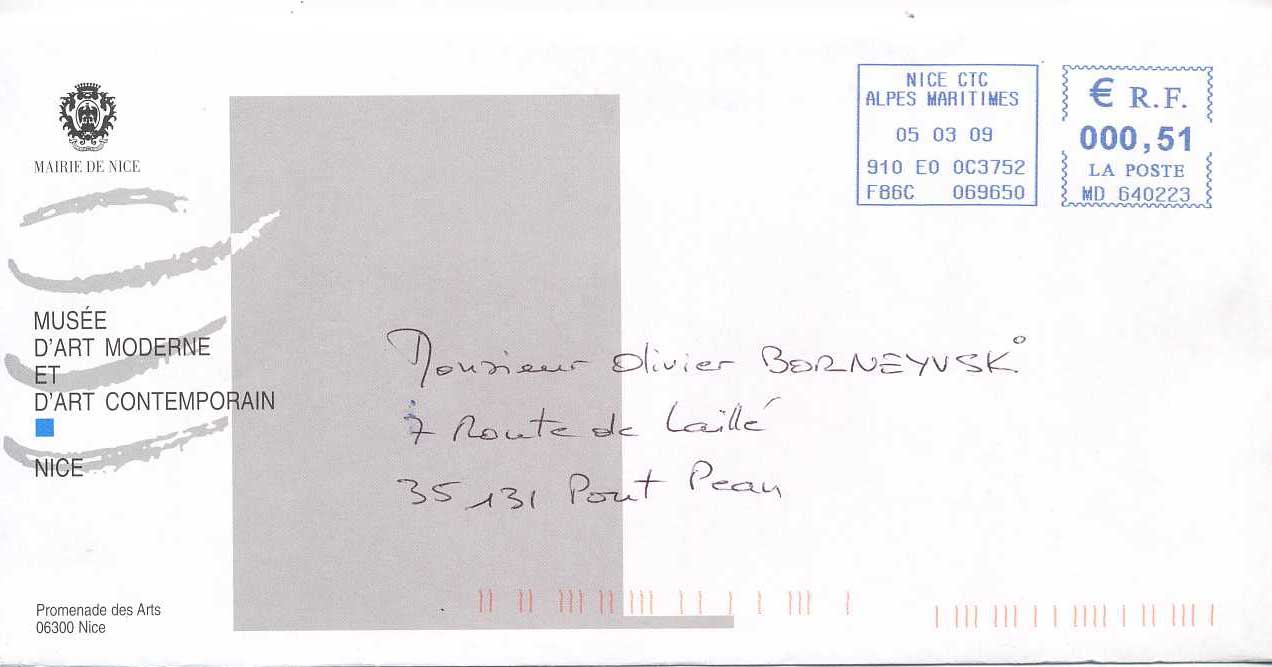 MAIRIE DE NICE
MUSÉE
D'ART MODERNE
ET
D'ART CONTEMPORAIN
NICE
NICE CTC
ALPES MARITIMES
05 03 09
910 E0 0C3752
F86C 069650
€ R.F.
000,51
LA POSTE
MD 640223
Monsieur Olivier BORNEYVSKi
7 Route de Laillé
35131 Pont Pean
Promenade des Arts
06300 Nice